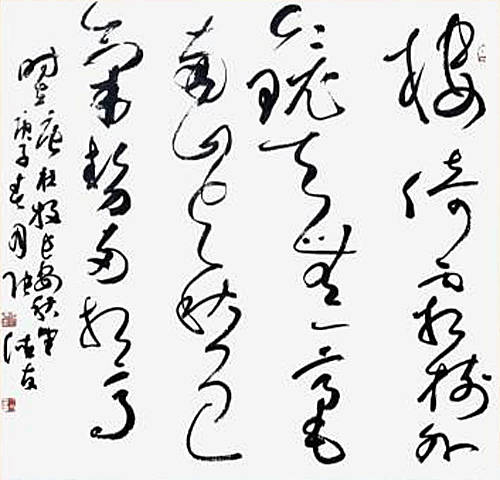 樓倚霜樹外
鏡天無一毫
南山与秋色
氣勢兩相高
杜牧长安秋望
庚子春月